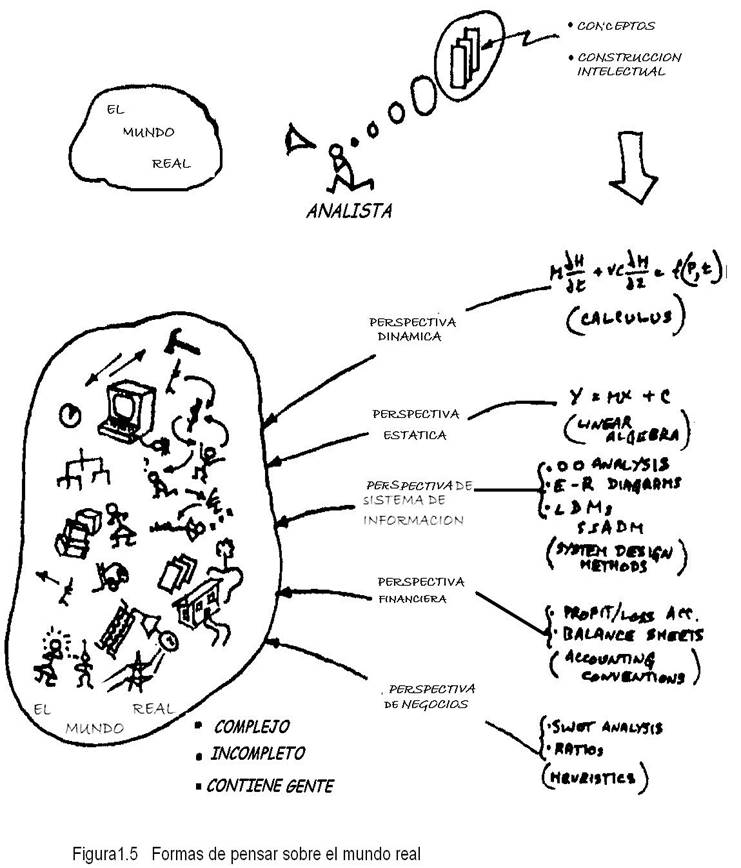 • CONCEPTOS
• CONSTRUCCION
INTELECTUAL
EL
MUNDO
REAL
ANALISTA
M dH/dt + VC dM/dz = f(P,t)
(CALCULUS)
PERSPECTIVA
DINAMICA
Y = MX + C
(LINEAR
ALGEBRA)
PERSPECTIVA
ESTATICA
• OO ANALYSIS
• E-R DIAGRAMS
• LDMs
SSADM
(SYSTEM DESIGN
METHODS)
PERSPECTIVA DE
SISTEMA DE
INFORMACION
PERSPECTIVA
FINANCIERA
• PROFIT/LOSS ACC.
• BALANCE SHEETS
(ACCOUNTING
CONVENTIONS)
. PERSPECTIVA
DE NEGOCIOS
• SWOT ANALYSIS
• RATIOS
(HEURISTICS)
EL REAL
MUNDO
▪ COMPLEJO
▪ INCOMPLETO
▪ CONTIENE GENTE
Figura1.5 Formas de pensar sobre el mundo real